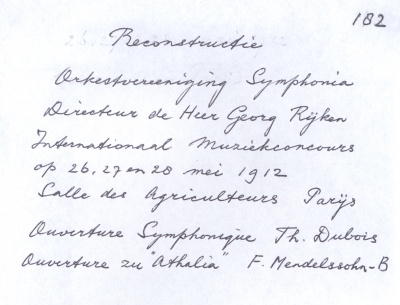 182
Reconstructie
Orkestvereeniging Symphonia
Directeur de Heer Georg Rijken
Internationaal Muziekconcours
op 26, 27 en 28 mei 1912
Salle des Agriculteurs Parijs
Ouverture Symphonique Th. Dubois
Ouverture zu "Athalia" F. Mendelssohn-B